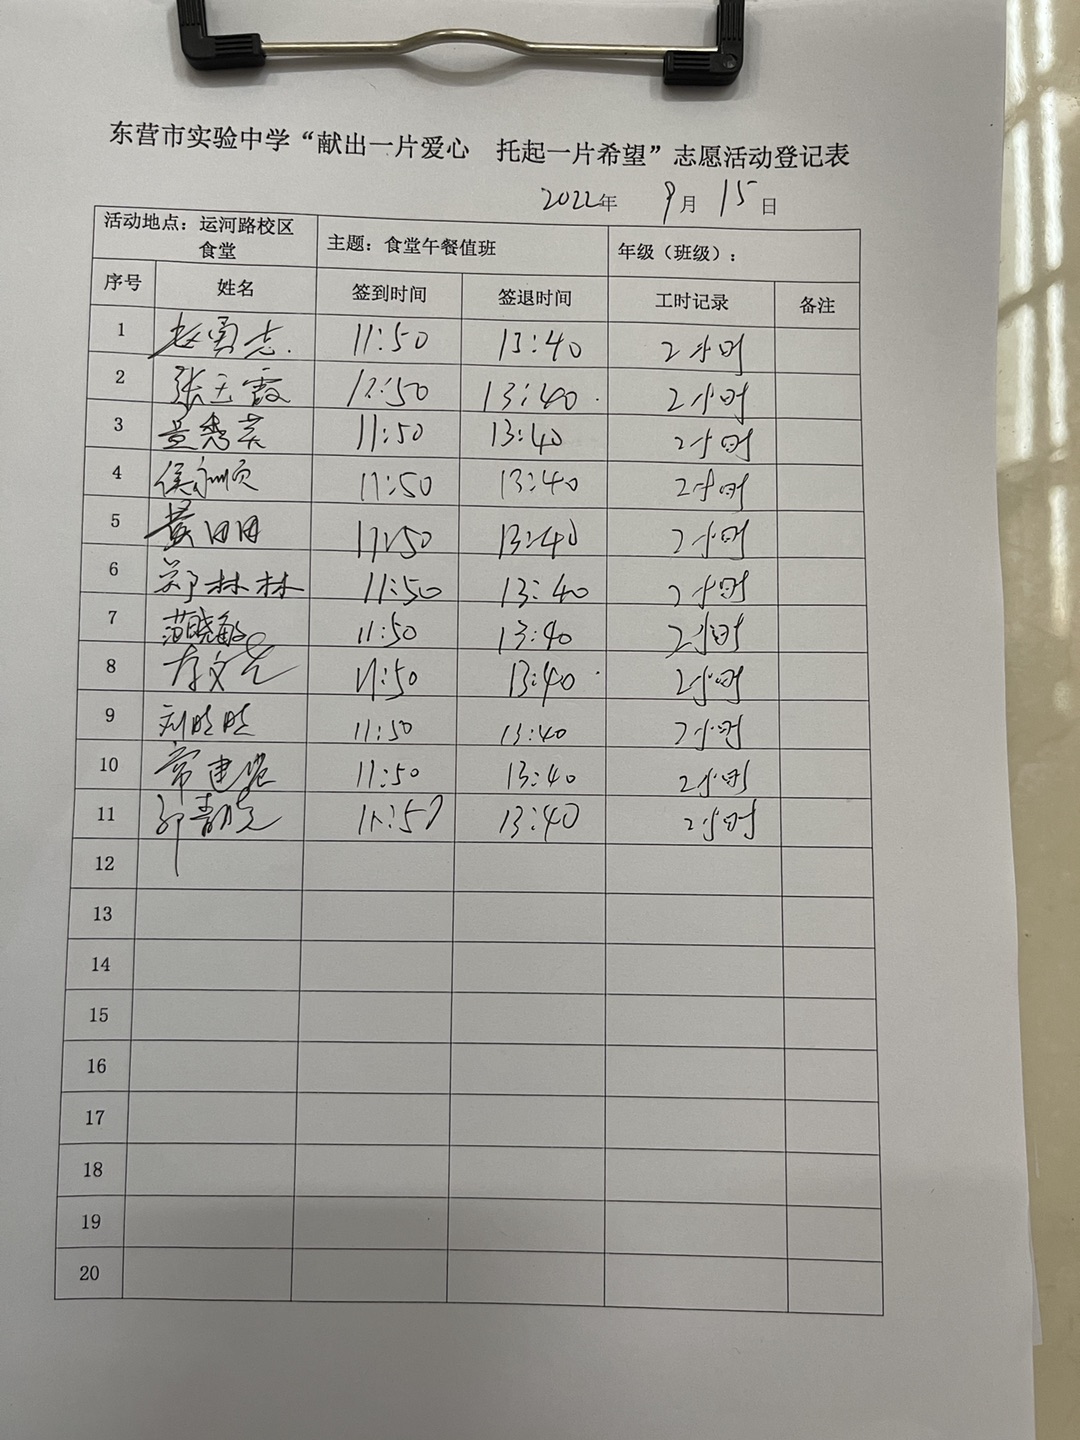 东营市实验中学“献出一片爱心 托起一片希望”志愿活动登记表
2022年 9月 15日
活动地点：运河路校区食堂 主题：食堂午餐值班 年级（班级）：
序号 姓名 签到时间 签退时间 工时记录 备注
1 赵勇志 11:50 13:40 2小时
2 张玉霞 12:50 13:40 2小时
3 秀英 11:50 13:40 2小时
4 侯 11:50 13:40 2小时
5 黄田田 11:50 13:40 2小时
6 郑林林 11:50 13:40 2小时
7 范晓敏 11:50 13:40 2小时
8 李文 11:50 13:40 2小时
9 刘晓晓 11:50 13:40 2小时
10 常建 11:50 13:40 2小时
11 13:40 2小时
12
13
14
15
16
17
18
19
20